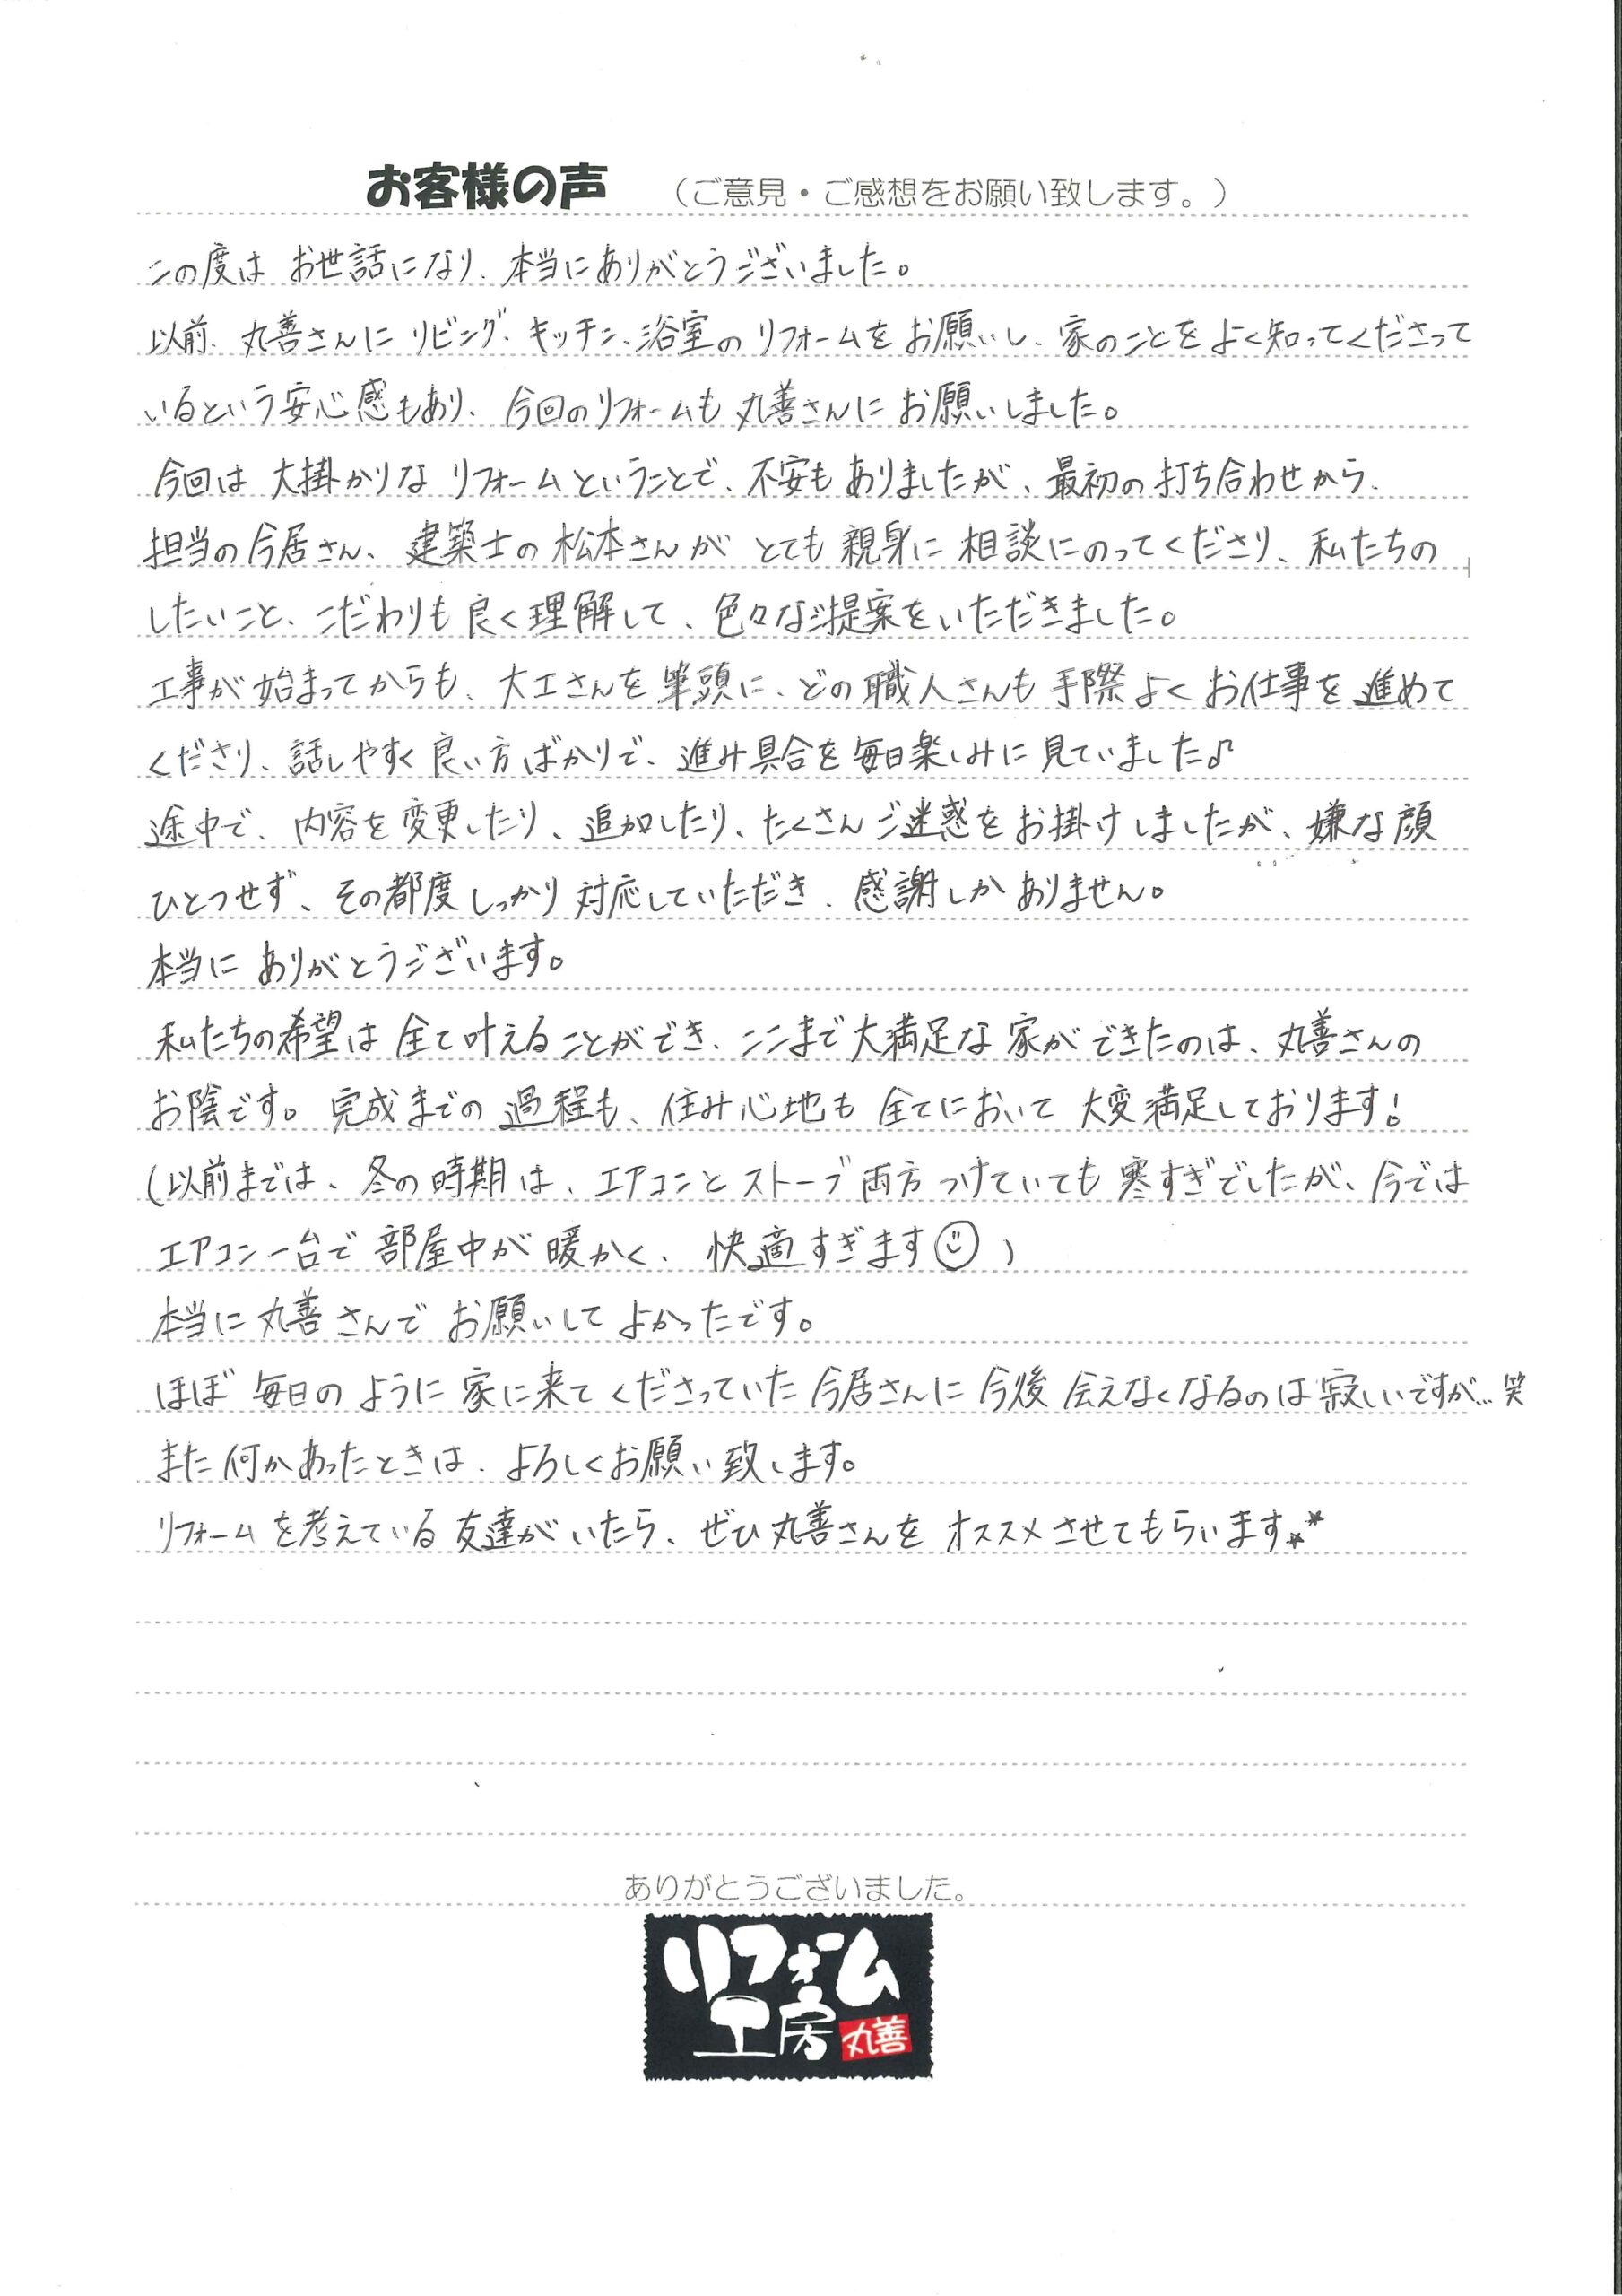 お客様の声 （ご意見・ご感想をお願い致します。）
この度は お世話になり、本当にありがとうございました。
以前、丸善さんに リビング、キッチン、浴室の リフォームを お願いし、家のことを よく知ってくださって
いるという安心感もあり、今回のリフォームも 丸善さんに お願いしました。
今回は 大掛かりな リフォームということで、不安も ありましたが、最初の打ち合わせから、
担当の今居さん、建築士の 松本さんが とても 親身に 相談にのってくださり、私たちの
したいこと、こだわりも 良く理解して、色々なご提案を いただきました。
工事が 始まってからも、大工さんを 筆頭に、どの職人さんも 手際よく お仕事を 進めて
くださり、話しやすく 良い方ばかりで、進み具合を 毎日楽しみに 見ていました♪
途中で、内容を 変更したり、追加したり、たくさん ご迷惑を お掛けしましたが、嫌な顔
ひとつせず、その都度 しっかり 対応していただき、感謝しか ありません。
本当に ありがとうございます。
私たちの希望は 全て叶えることができ、ここまで 大満足な 家が できたのは、丸善さんの
お陰です。完成までの 過程も、住み心地も 全てにおいて 大変満足しております!
(以前までは、冬の時期は、エアコンと ストーブ 両方 つけていても 寒すぎでしたが、今では
エアコン一台で 部屋中が 暖かく、快適すぎます☺)
本当に 丸善さんで お願いして よかったです。
ほぼ 毎日の ように 家に来て くださっていた 今居さんに 今後 会えなくなるのは 寂しいですが… 笑
また 何か あったときは、よろしくお願い致します。
リフォームを考えている 友達が いたら、ぜひ 丸善さんを オススメさせてもらいます★★
ありがとうございました。
リフォーム
工房 丸善